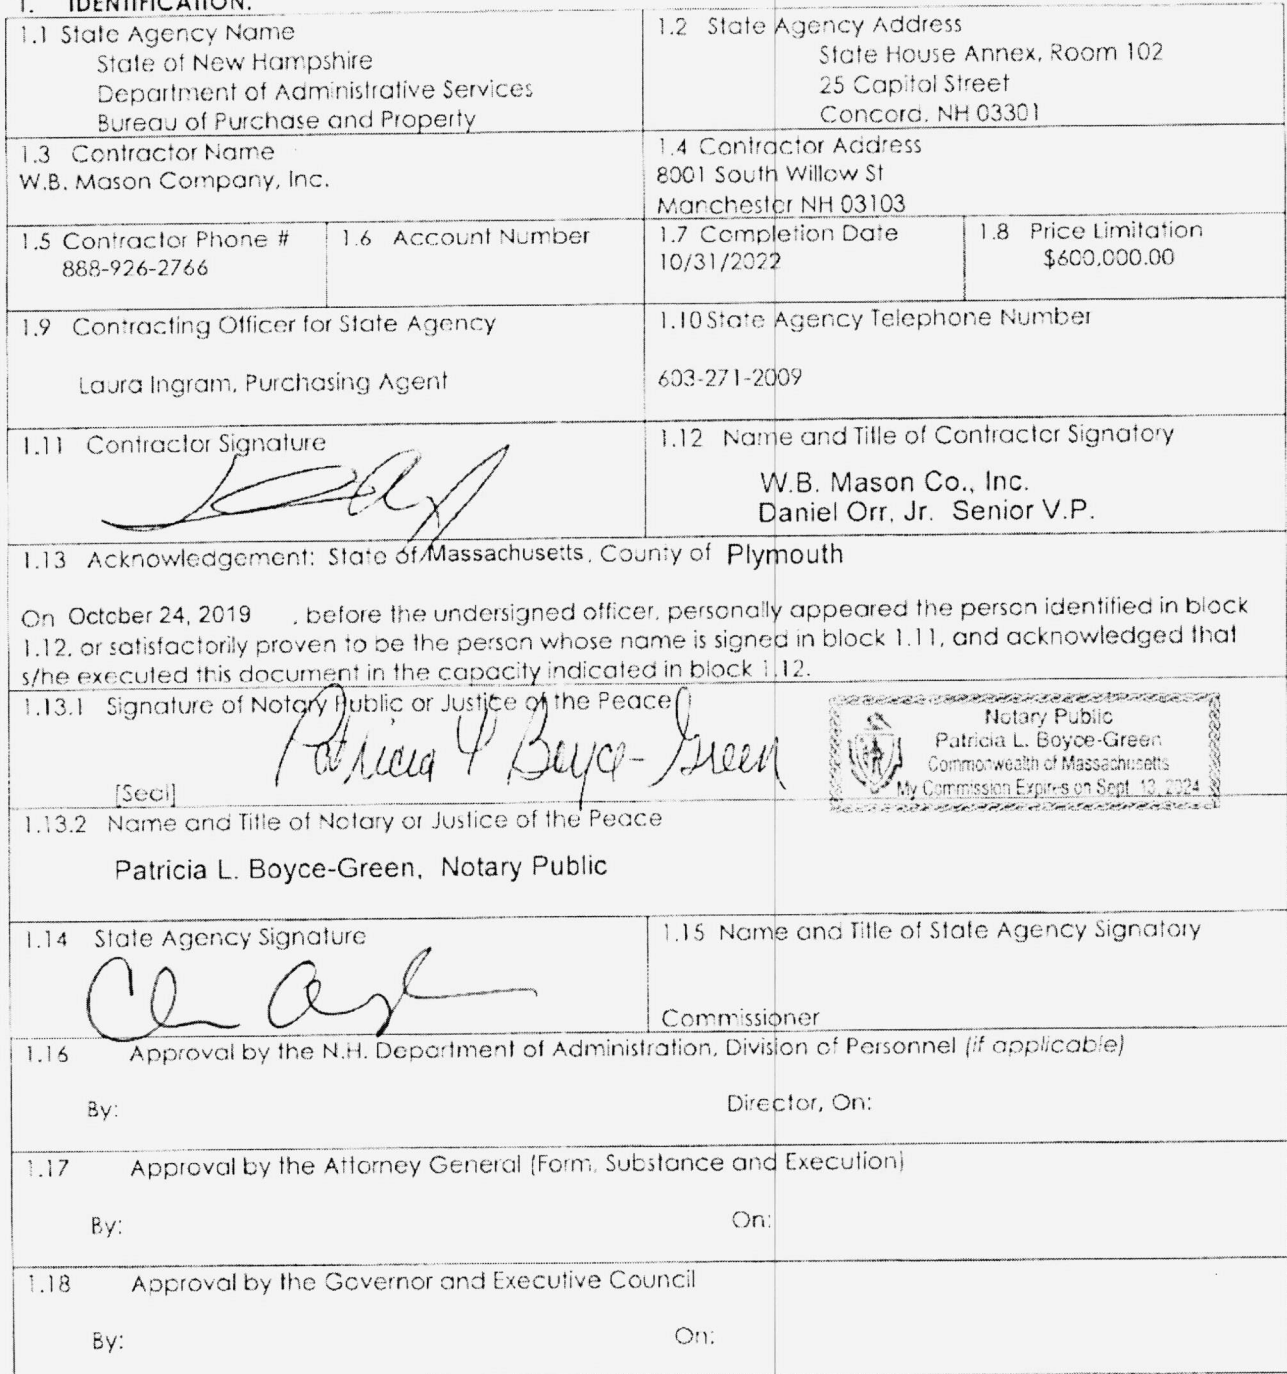 1. IDENTIFICATION.
1.1 State Agency Name
State of New Hampshire
Department of Administrative Services
Bureau of Purchase and Property
1.2 State Agency Address
State House Annex, Room 102
25 Capitol Street
Concord, NH 03301
1.3 Contractor Name
W.B. Mason Company, Inc.
1.4 Contractor Address
8001 South Willow St
Manchester NH 03103
1.5 Contractor Phone #
888-926-2766
1.6 Account Number
1.7 Completion Date
10/31/2022
1.8 Price Limitation
$600,000.00
1.9 Contracting Officer for State Agency
Laura Ingram, Purchasing Agent
1.10 State Agency Telephone Number
603-271-2009
1.11 Contractor Signature
1.12 Name and Title of Contractor Signatory
W.B. Mason Co., Inc.
Daniel Orr, Jr. Senior V.P.
1.13 Acknowledgement: State of Massachusetts, County of Plymouth
On October 24, 2019 , before the undersigned officer, personally appeared the person identified in block
1.12, or satisfactorily proven to be the person whose name is signed in block 1.11, and acknowledged that
s/he executed this document in the capacity indicated in block 1.12.
1.13.1 Signature of Notary Public or Justice of the Peace
Patricia L Boyce-Green
[Seal]
Notary Public
Patricia L. Boyce-Green
Commonwealth of Massachusetts
My Commission Expires on Sept. 13, 2024
1.13.2 Name and Title of Notary or Justice of the Peace
Patricia L. Boyce-Green, Notary Public
1.14 State Agency Signature
1.15 Name and Title of State Agency Signatory
Commissioner
1.16 Approval by the N.H. Department of Administration, Division of Personnel (if applicable)
By: Director, On:
1.17 Approval by the Attorney General (Form, Substance and Execution)
By: On:
1.18 Approval by the Governor and Executive Council
By: On: